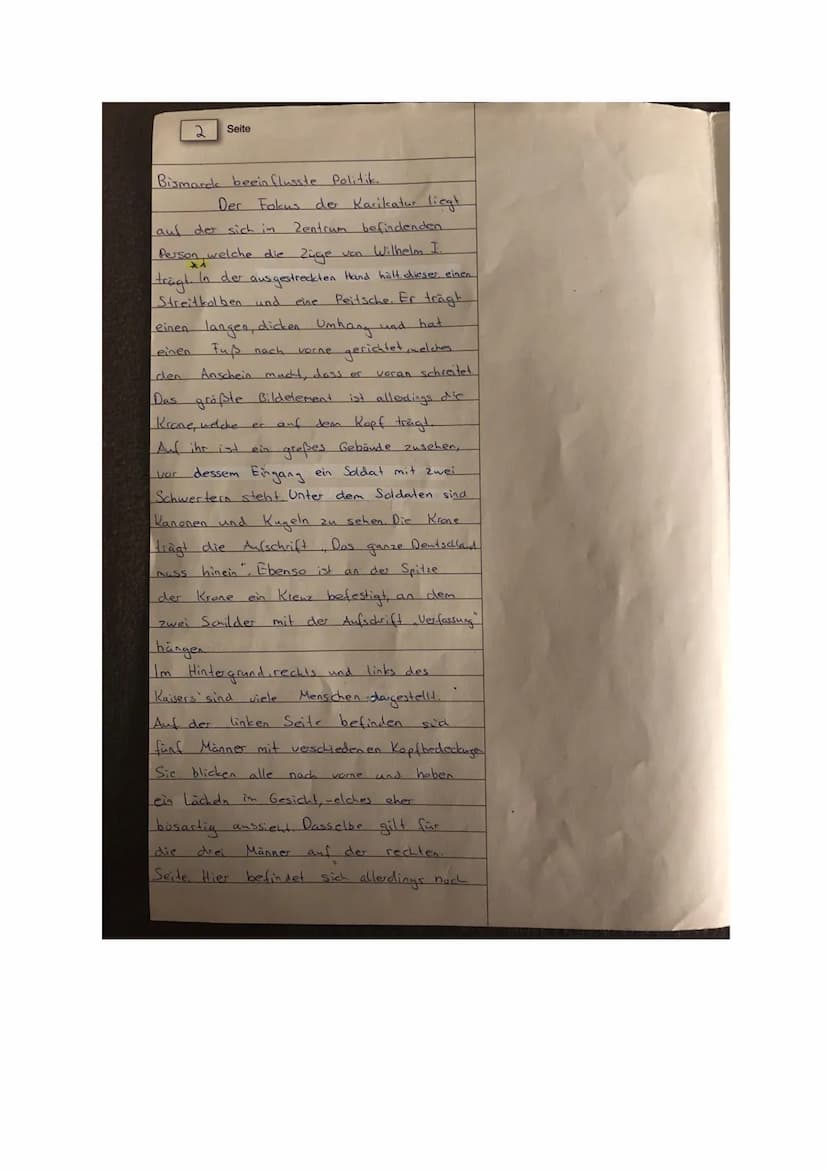 2 Seite
Bismarck beeinflusste Politik.
Der Fokus der Karikatur liegt
auf der sich im Zentrum befindenden
Person, welche die Züge von Wilhelm I.
*1
trägt. In der ausgestreckten Hand hält dieser einen
Streitkolben und eine Peitsche. Er trägt
einen langen, dicken Umhang und hat
einen Fuß nach vorne gerichtet, welches
den Anschein macht, dass er voran schreitet
Das größte Bildelement ist allerdings die
Krone, welche er auf dem Kopf trägt.
Auf ihr ist ein großes Gebäude zusehen,
vor dessem Eingang ein Soldat mit zwei
Schwertern steht. Unter dem Soldaten sind
Kanonen und Kugeln zu sehen. Die Krone
trägt die Aufschrift „Das ganze Deutschland
muss hinein“. Ebenso ist an der Spitze
der Krone ein Kreuz befestigt, an dem
zwei Schilder mit der Aufschrift „Verfassung“
hängen
Im Hintergrund, rechts und links des
Kaisers sind viele Menschen dargestellt.
Auf der linken Seite befinden sich
fünf Männer mit verschiedenen Kopfbedeckungen
Sie blicken alle nach vorne und haben
ein Lächeln im Gesicht, welches eher
bösartig aussieht. Dasselbe gilt für
die drei Männer auf der rechten
Seite. Hier befindet sich allerdings noch